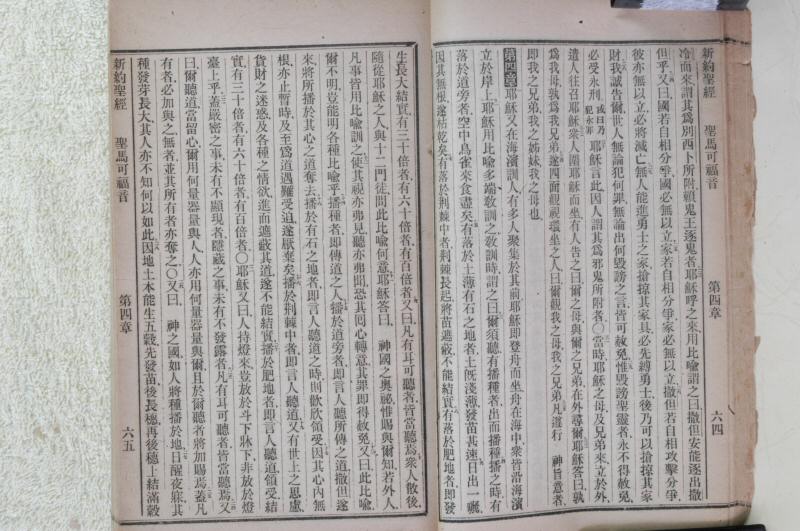 新約聖經 聖馬可福音 第四章 六四
冷而來謂其爲別西卜所附賴鬼王逐鬼者耶穌呼之來用比喻謂之曰撒但安能逐出撒
但乎又曰國若自相分爭國必無以立家若自相分爭家必無以立撒但若自相攻擊分爭
彼亦無以立必將滅亡無人能進勇士之家搶掠其家具必先縛勇士後乃可以搶掠其家
財我誠告爾世人無論犯何罪無論出何毀謗之言皆可赦免惟毀謗聖靈者永不得赦免
必受永刑或曰乃犯永罪耶穌言此因人謂其爲邪鬼所附者〇當時耶穌之母及兄弟來立於外
遣人往召耶穌衆人圍耶穌而坐有人告之曰爾之母與爾之兄弟在外尋爾耶穌答曰孰
爲我母孰爲我兄弟遂四面觀視環坐之人曰爾觀我之母我之兄弟凡遵行 神旨意者
即我之兄弟我之姊妹我之母也
第四章 耶穌又在海濱訓人有多人聚集於其前耶穌即登舟而坐舟在海中衆皆沿海濱
立於岸上耶穌用比喻多端敎訓之敎訓時謂之曰爾須聽有播種者出而播種播之時有
落於道旁者空中鳥雀來食盡矣有落於土薄有石之地者土旣淺薄發苗甚速日出一曬
因其無根遂枯乾矣有落於荆棘中者荆棘長起將苗遮蔽不能結實有落於肥地者即發
生長大結實有三十倍者有六十倍者有百倍者又曰凡有耳可聽者皆當聽焉衆人散後
隨從耶穌之人與十二門徒問此比喻何意耶穌答曰 神國之奧祕惟賜與爾知若外人
凡事皆用比喻訓之使其視亦弗見聽亦弗聞恐其囘心轉意其罪即得赦免又曰此比喻
爾不明豈能明各種比喻乎播種者即傳道之人播於道旁者即言人聽所傳之道撒但遂
來將所播於其心之道奪去播於有石之地者即言人聽道之時則歡欣領受因其心內無
根亦止暫時及至爲道遇難受迫遂厭棄矣播於荆棘中者即言人聽道又有世上之思慮
貨財之迷惑及各種之情欲進而遮蔽其道遂不能結實播於肥地者即言人聽道領受結
實有三十倍者有六十倍者有百倍者〇耶穌又曰人持燈來豈放於斗下牀下非放於燈
臺上乎蓋嚴密之事未有不顯現者隱藏之事未有不發露者凡有耳可聽者皆當聽焉又
曰爾聽道當留心爾用何量器量與人人亦用何量器量與爾且於爾聽者將加賜焉蓋凡
有者必加與之無者並其所有者亦奪之〇又曰 神之國如人將種播於地日醒夜寐其
種發芽長大其人亦不知何以如此因地土本能生五穀先發苗後長穗再後穗上結滿穀
新約聖經 聖馬可福音 第四章 六五